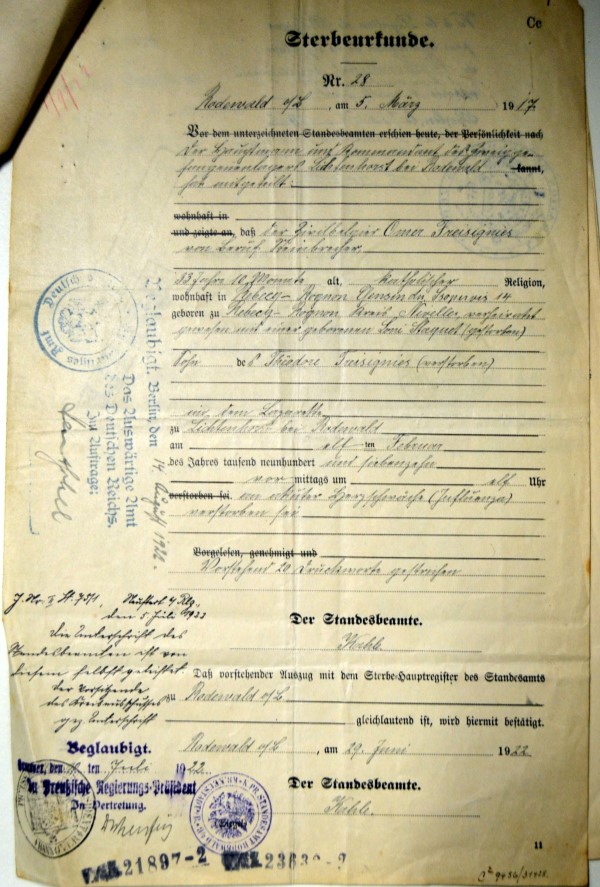 Cc
Sterbeurkunde.
Nr. 28
Rodewald o/L , am 5. März 1917
Vor dem unterzeichneten Standesbeamten erschien heute, der Persönlichkeit nach
der Hauptmann und Kommandant des
Lichtenhorst bei Rodewald kannt,
hat mitgeteilt:
wohnhaft in
und zeigte an, daß der Zivilbelgier Omer Treisignies
von Beruf Steinbrecher
33 Jahre 10 Monate alt, katholischer Religion,
wohnhaft in Rebecq-Rognon 14
geboren zu Rebecq-Rognon Kreis Nivelles, verheiratet
gewesen mit einer gebornen Staquet (gestorben)
Sohn des Théodore Treisignies (verstorben)
in dem Lazarette
zu Lichtenhorst bei Rodewald
am elf ten Februar
des Jahres tausend neunhundert und siebenzehn
vor mittags um elf Uhr
verstorben sei. an akuter Herzschwäche (Influenza)
verstorben sei
Vorgelesen, genehmigt und
Vorstehend 20 Druckworte gestrichen
Der Standesbeamte.
Kahle.
Daß vorstehender Auszug mit dem Sterbe-Hauptregister des Standesamts
zu Rodewald o/L
gleichlautend ist, wird hiermit bestätigt.
Rodewald o/L , am 29. Juni 1922
Der Standesbeamte.
Kahle.
11
Beglaubigt. Berlin, den 14 August 1922.
Das Auswärtige Amt
des Deutschen Reichs.
Im Auftrage:
den 5 Juli 1922
Die Unterschrift des
Standesbeamten ist von
diesem selbst geleistet
Der Vorsitzende
des Kreisausschusses
gez. Unterschrift
Beglaubigt.
ten Juli 1922.
Der Preußische Regierungs-Präsident
In Vertretung.
21897-2